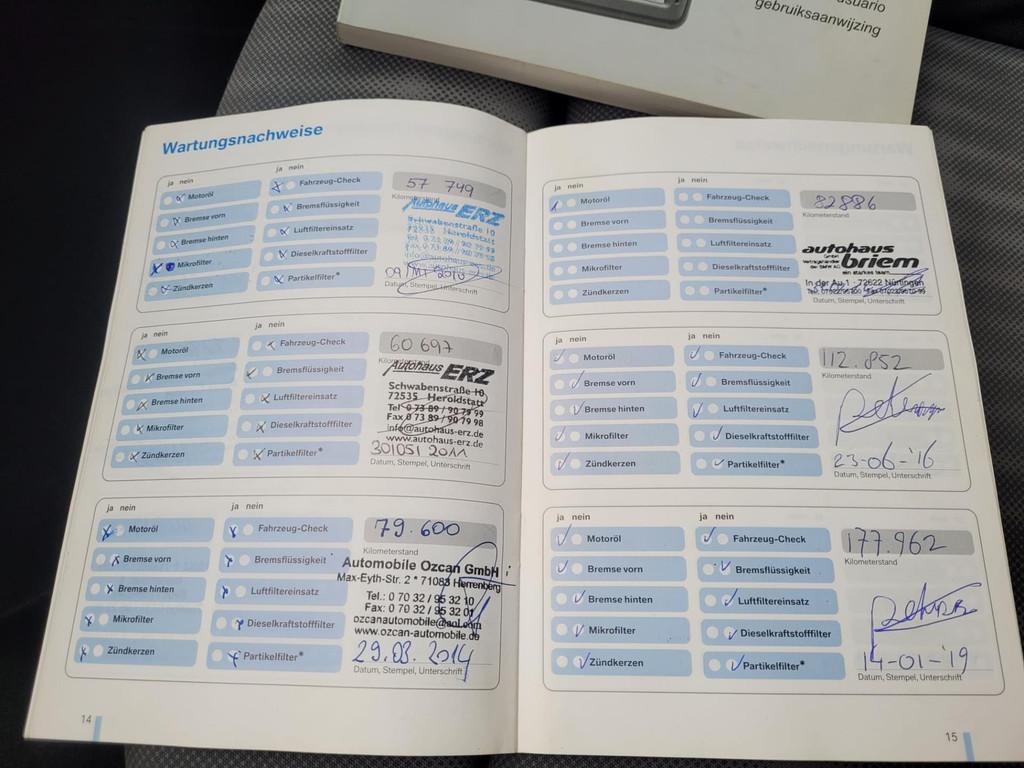 usuario
gebruiksaanwijzing
Wartungsnachweise
ja nein
ja nein
Motoröl
Fahrzeug-Check
57 749
Kilometerstand
Bremse vorn
Bremsflüssigkeit
Autohaus ERZ
Schwabenstraße 10
Bremse hinten
Luftfiltereinsatz
Mikrofilter
Dieselkraftstofffilter
Zündkerzen
Partikelfilter*
Datum, Stempel, Unterschrift
ja nein
ja nein
Motoröl
Fahrzeug-Check
60 697
Bremse vorn
Bremsflüssigkeit
Autohaus ERZ
Schwabenstraße 10
Bremse hinten
Luftfiltereinsatz
72535 Heroldstatt
Tel 0 73 89 / 90 79 99
Fax 0 73 89 / 90 79 98
Mikrofilter
Dieselkraftstofffilter
info@autohaus-erz.de
www.autohaus-erz.de
Zündkerzen
Partikelfilter*
Datum, Stempel, Unterschrift
ja nein
ja nein
Motoröl
Fahrzeug-Check
79.600
Kilometerstand
Bremse vorn
Bremsflüssigkeit
Automobile Ozcan GmbH
Max-Eyth-Str. 2 * 71083 Herrenberg
Bremse hinten
Luftfiltereinsatz
Tel.: 0 70 32 / 95 32 10
Fax: 0 70 32 / 95 32 01
Mikrofilter
Dieselkraftstofffilter
ozcanautomobile@aol.com
www.ozcan-automobile.de
Zündkerzen
Partikelfilter*
29.03.2014
Datum, Stempel, Unterschrift
14
ja nein
ja nein
Motoröl
Fahrzeug-Check
82886
Kilometerstand
Bremse vorn
Bremsflüssigkeit
Bremse hinten
Luftfiltereinsatz
autohaus
briem
GmbH
Vertragshändler
der BMW AG
ein starkes team
Mikrofilter
Dieselkraftstofffilter
In der Au 1 · 72622 Nürtingen
Zündkerzen
Partikelfilter*
Datum, Stempel, Unterschrift
ja nein
ja nein
Motoröl
Fahrzeug-Check
112.852
Kilometerstand
Bremse vorn
Bremsflüssigkeit
Bremse hinten
Luftfiltereinsatz
Mikrofilter
Dieselkraftstofffilter
Zündkerzen
Partikelfilter*
23-06-'16
Datum, Stempel, Unterschrift
ja nein
ja nein
Motoröl
Fahrzeug-Check
177.962
Kilometerstand
Bremse vorn
Bremsflüssigkeit
Bremse hinten
Luftfiltereinsatz
Mikrofilter
Dieselkraftstofffilter
Zündkerzen
Partikelfilter*
14-01-'19
Datum, Stempel, Unterschrift
15